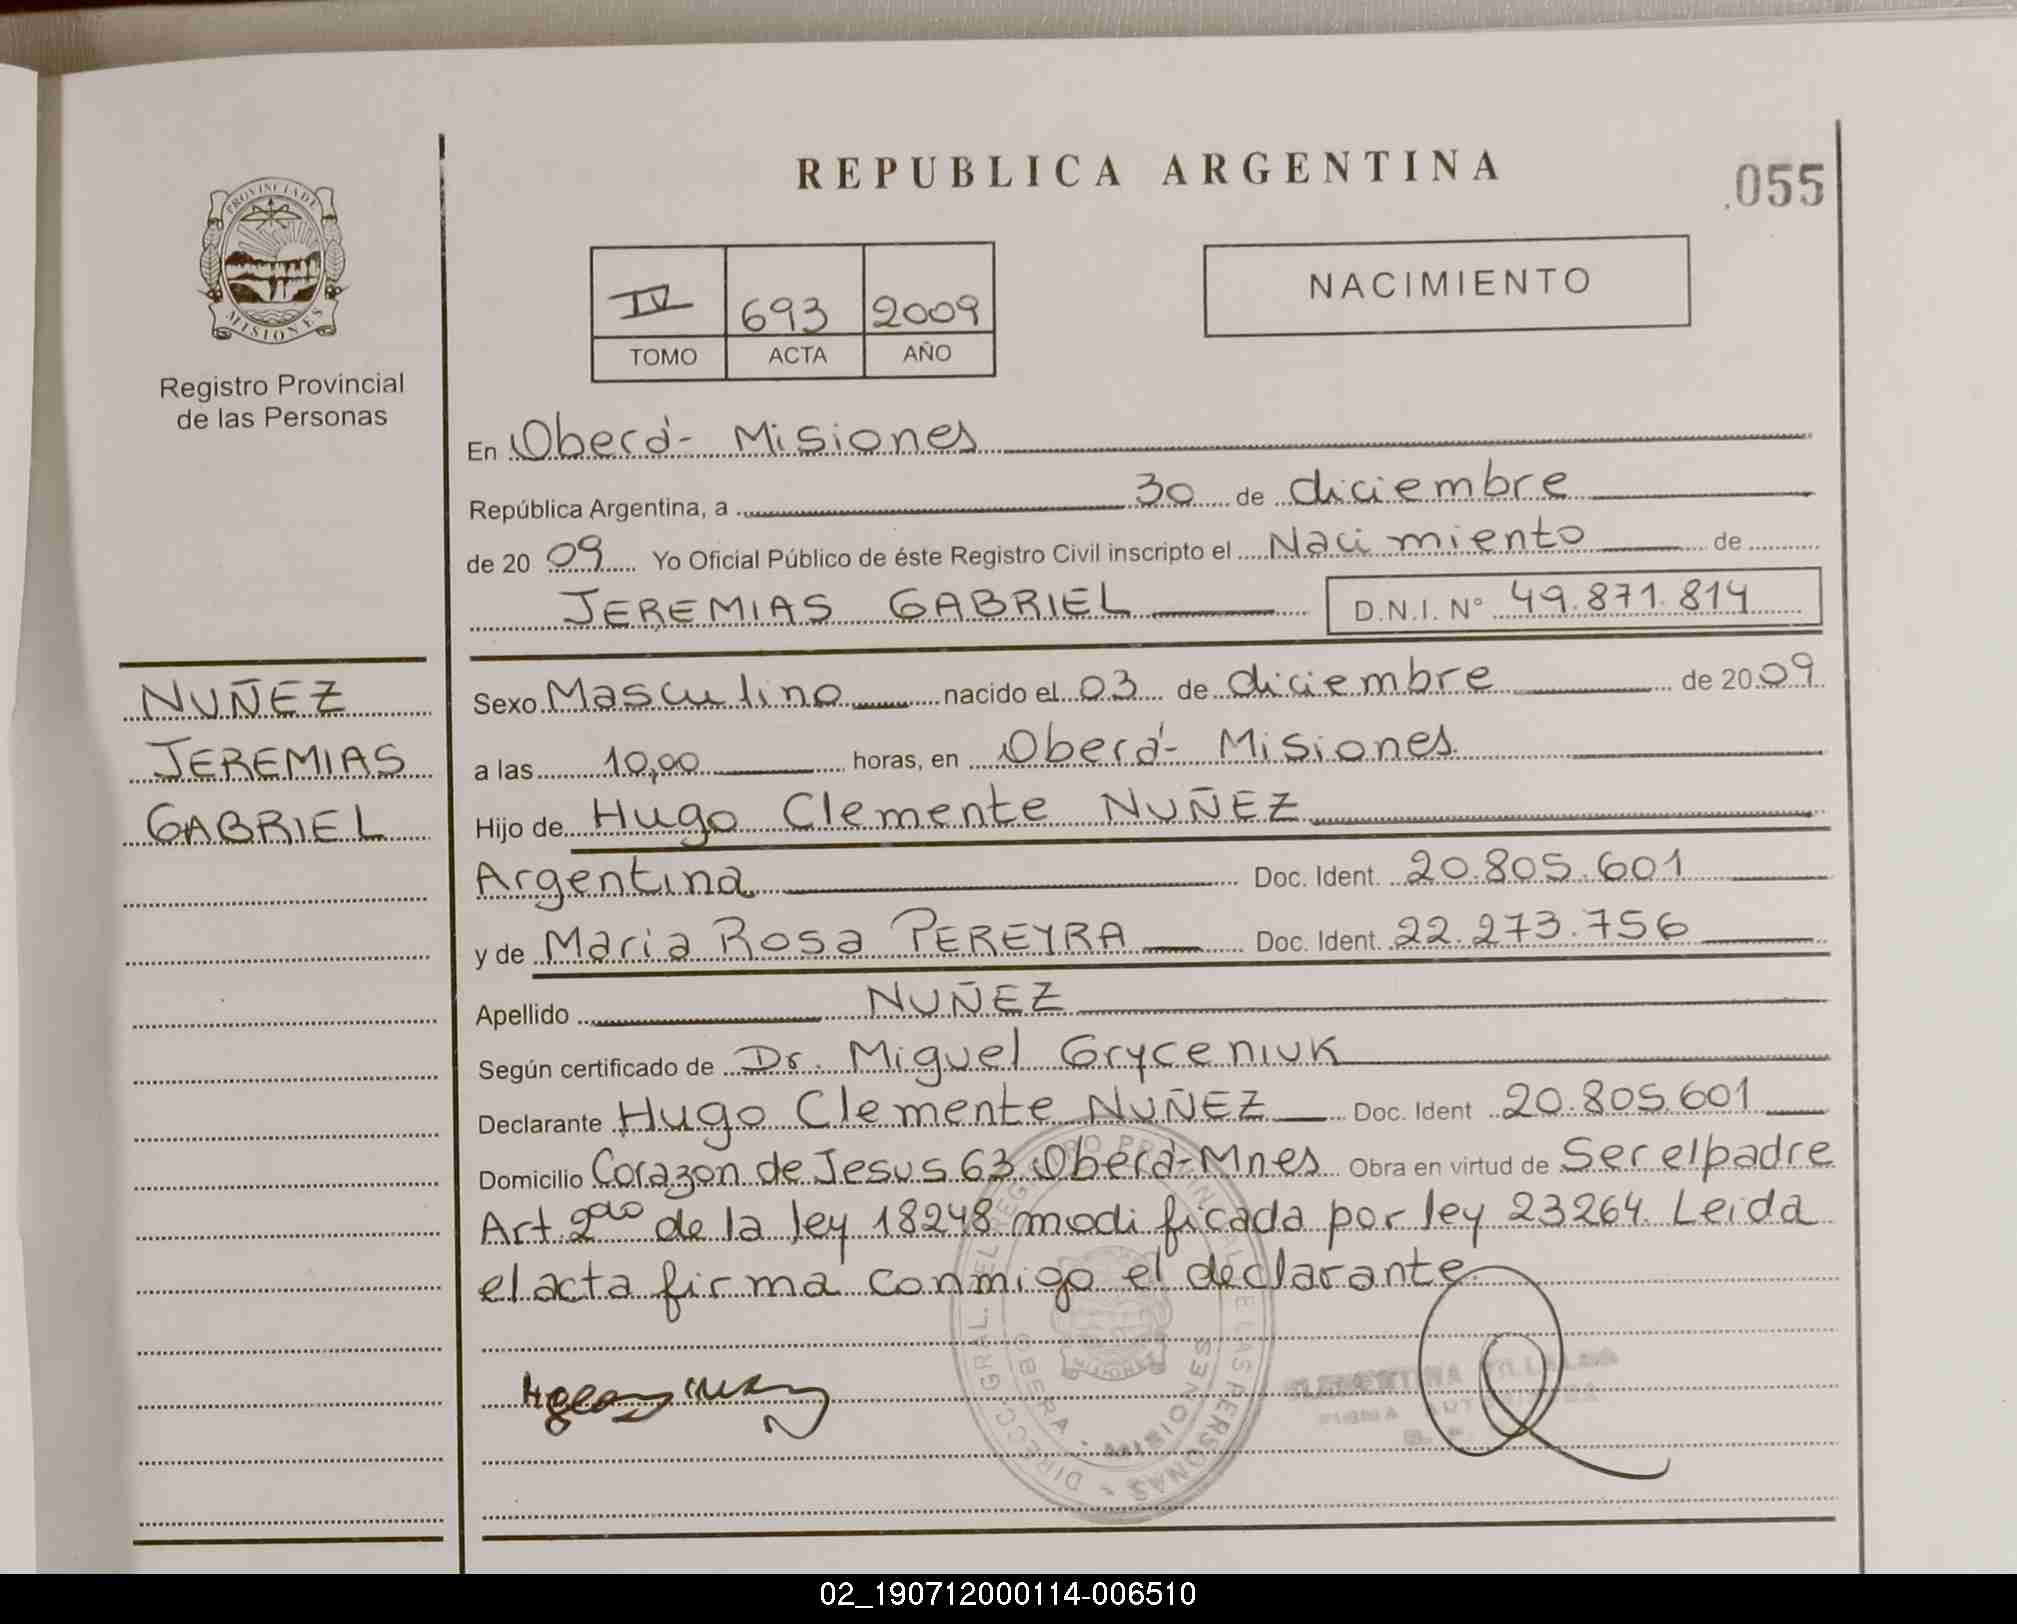 REPUBLICA ARGENTINA
.055
PROVINCIA DE
MISIONES
Registro Provincial
de las Personas
IV 693 2009
TOMO ACTA AÑO
NACIMIENTO
En Oberá - Misiones
República Argentina, a 30 de diciembre
de 20 09 Yo Oficial Público de éste Registro Civil inscripto el Nacimiento de
JEREMIAS GABRIEL D.N.I. N° 49.871.814
NUÑEZ
JEREMIAS
GABRIEL
Sexo Masculino nacido el 03 de diciembre de 20 09
a las 10,00 horas, en Oberá - Misiones
Hijo de Hugo Clemente NUÑEZ
Argentina Doc. Ident. 20.805.601
y de Maria Rosa PEREYRA Doc. Ident. 22.273.756
Apellido NUÑEZ
Según certificado de Dr. Miguel Gryceniuk
Declarante Hugo Clemente NUÑEZ Doc. Ident 20.805.601
Domicilio Corazon de Jesus 63 Oberá-Mnes Obra en virtud de Ser el padre
Art 2do de la ley 18248 modificada por ley 23264. Leida
el acta firma conmigo el declarante.
DIRECC. GRAL. EL REGISTRO PROVINCIAL DE LAS PERSONAS
OBERA - MISIONES
02_190712000114-006510